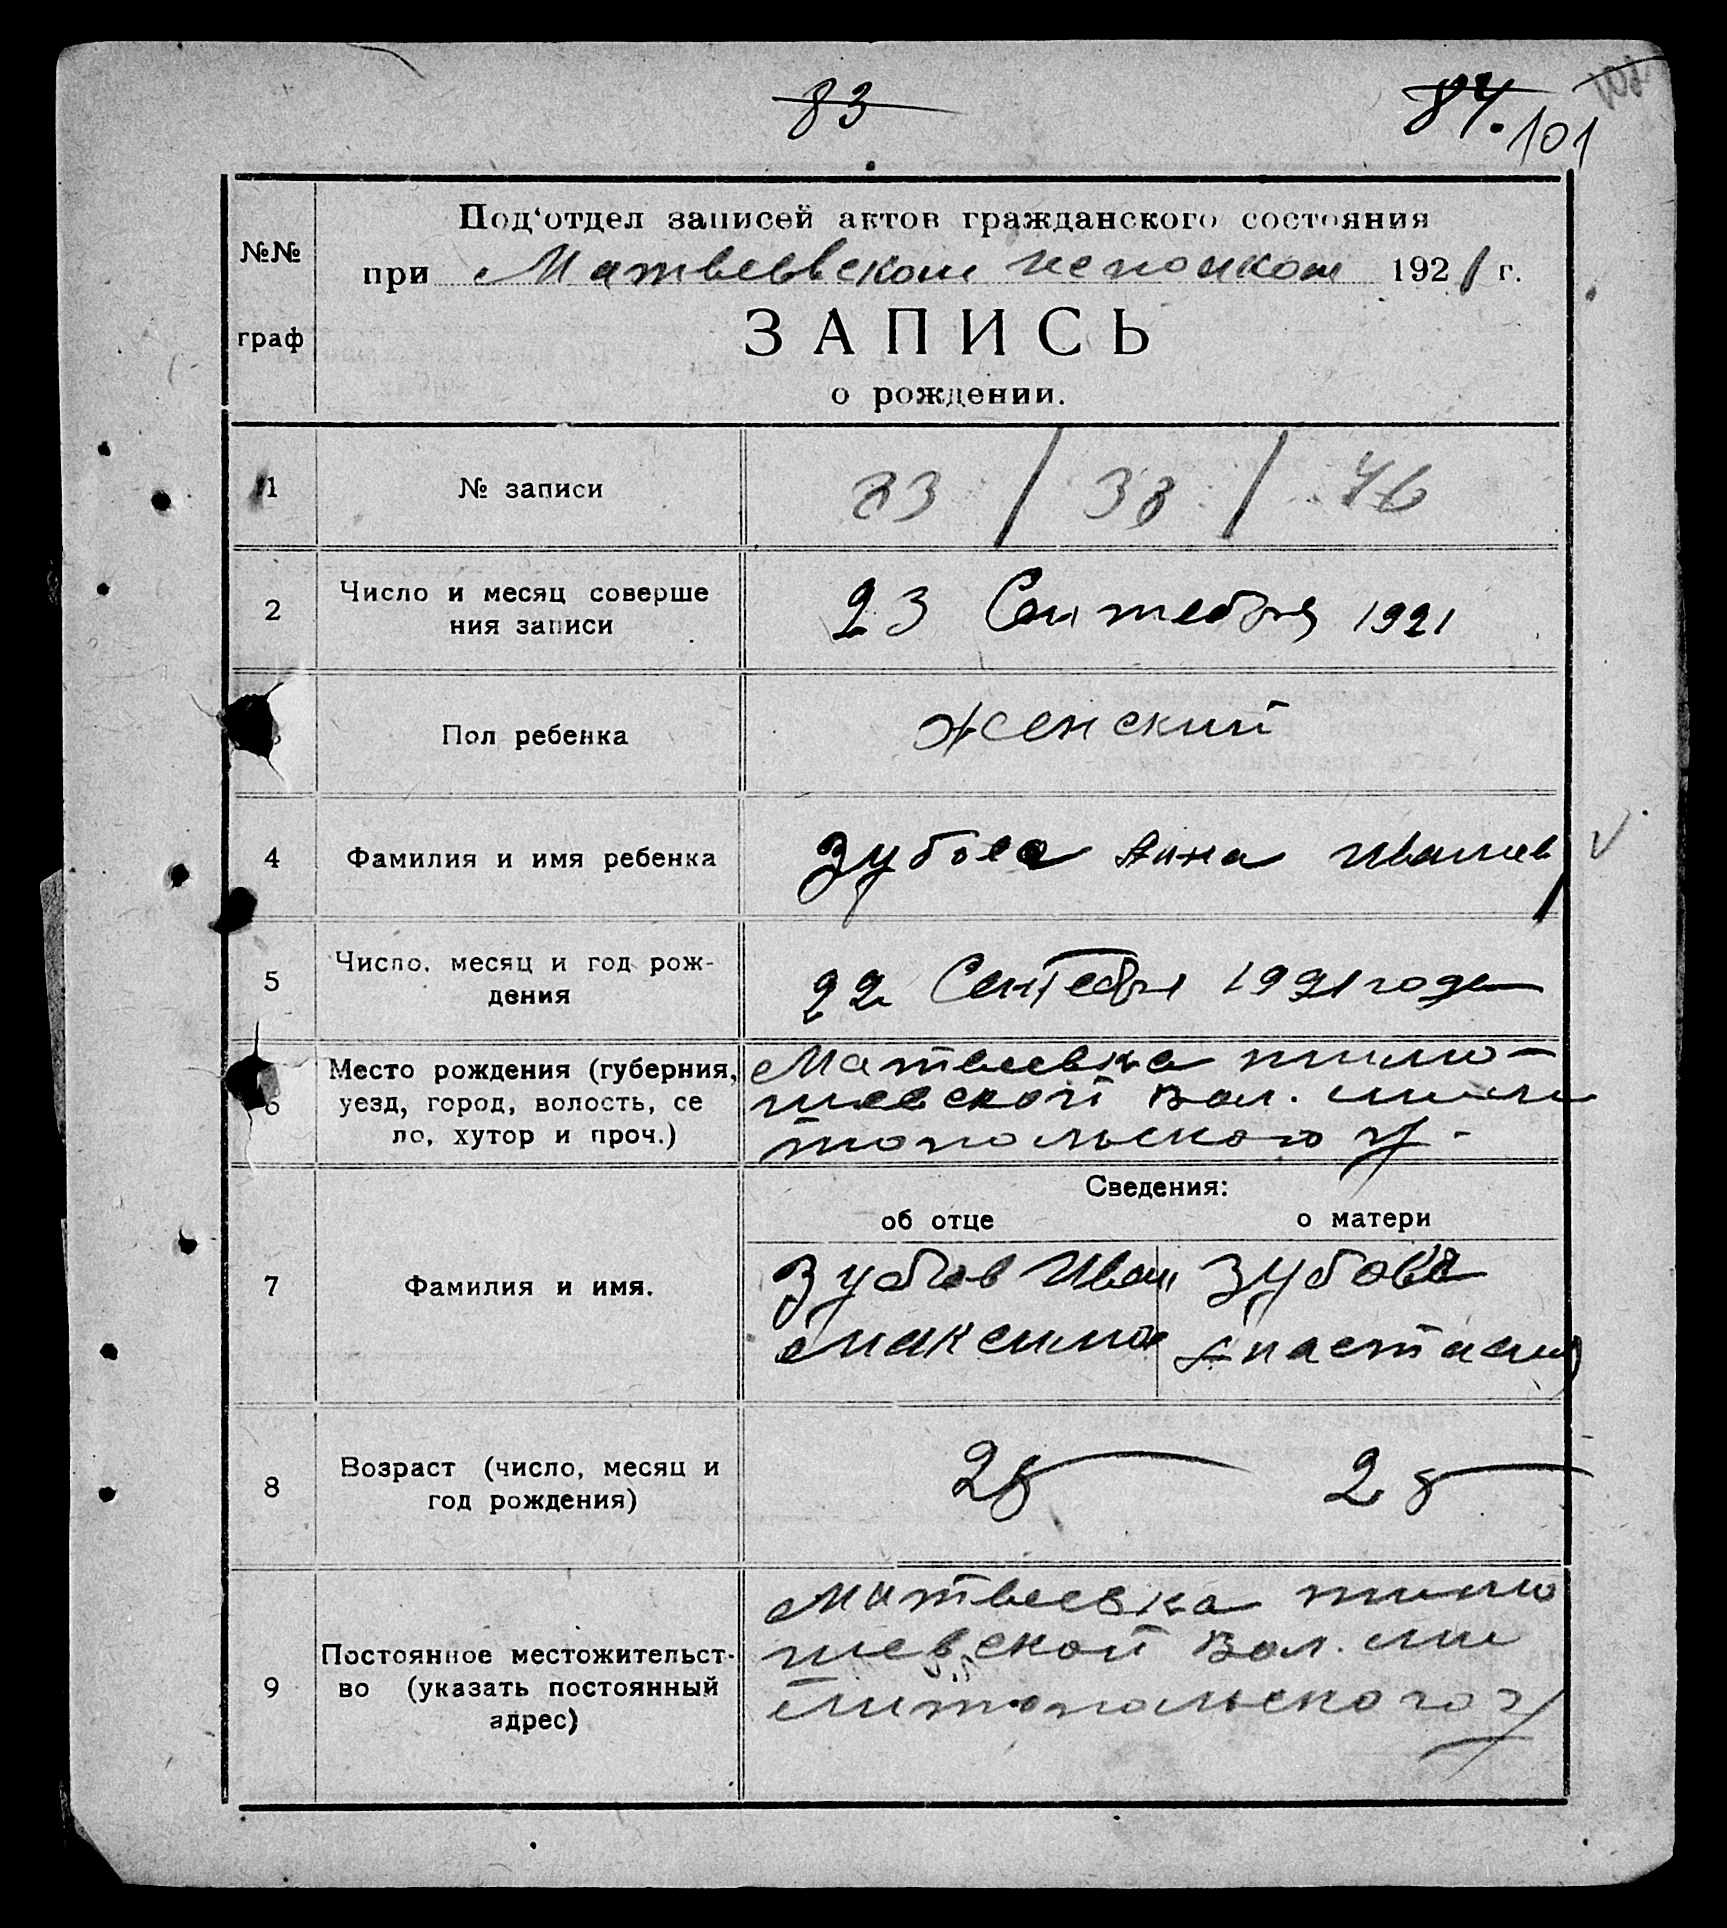 83
84. 101
Под‘отдел записей актов гражданского состояния
№№
при Матвеевском исполком 1921 г.
граф
ЗАПИСЬ
о рождении.
1 № записи 33 / 38 / 46
2 Число и месяц соверше
ния записи
23 Сентебря 1921
Пол ребенка женский
4 Фамилия и имя ребенка Зубова Анна Иванов
5 Число, месяц и год рож-
дения
22 Сентебря 1921 года
6 Место рождения (губерния,
уезд, город, волость, се
ло, хутор и проч.)
Матвеевка тимо-
шевской вол. мели
топольского у.
Сведения:
об отце о матери
7 Фамилия и имя.
Зубов Иван Зубова
максимов Анастасия
8 Возраст (число, месяц и
год рождения)
28 28
9 Постоянное местожительст-
во (указать постоянный
адрес)
Матвеевка тимо
шевской вол. ме
литопольского у